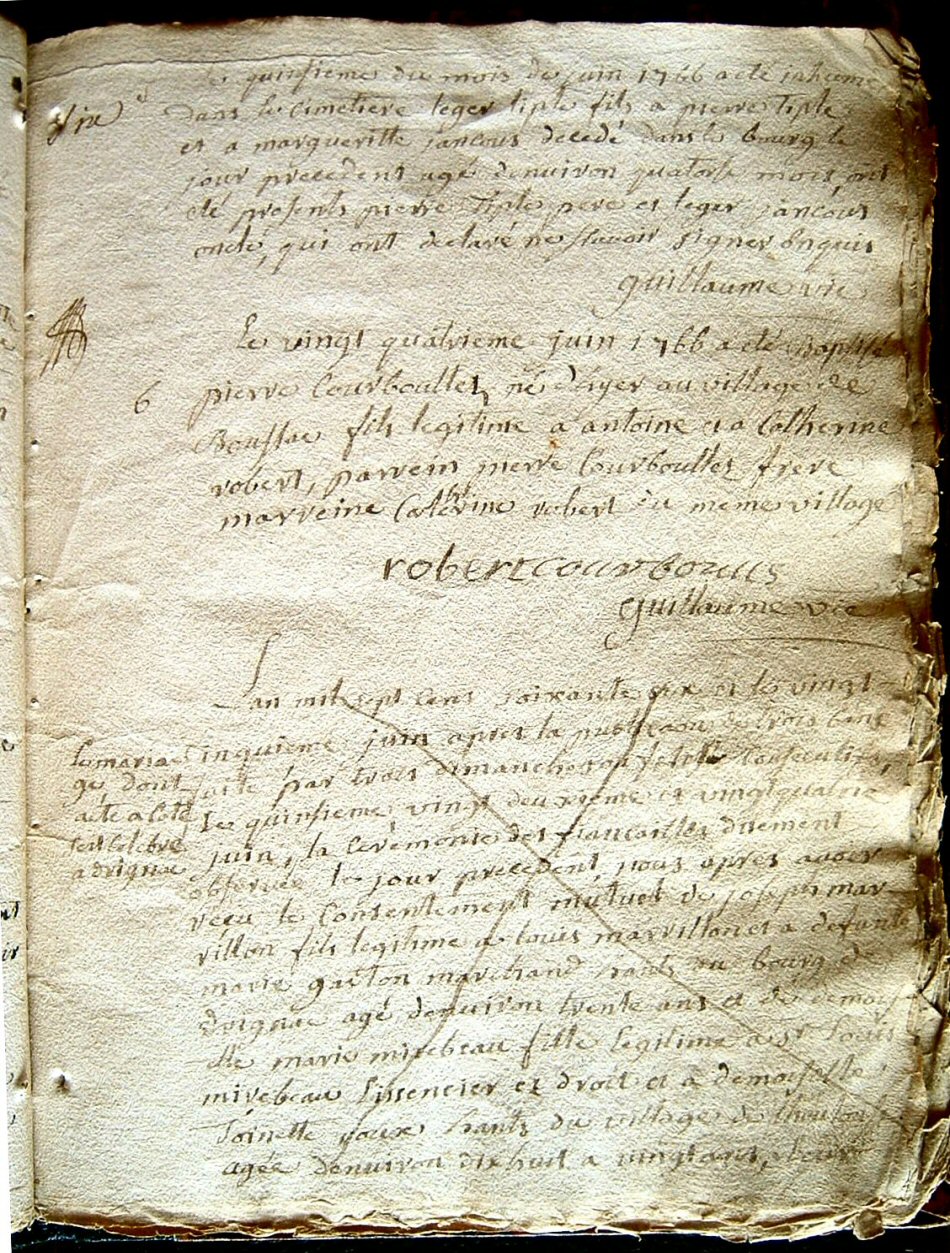 le quinsieme du mois de juin 1766 a eté inhumé
dans le cimetiere leger tiple fils a pierre tiple
et a margueritte jancous decedé dans le bourg le
jour precedent agé denuiron quatorse mois, ont
eté presents pierre tiple pere et leger jancous
oncle, qui ont declaré ne scavoir signer enquis
guillaume vic
6
Le vingt quatrieme juin 1766 a eté Baptisé
pierre Courboulles né d'hyer au village de
Boussac fils legitime a antoine et a Catherine
robert, parrein pierre Courboulles frere
marreine Catherine robert du meme village
robert courboules
guillaume vic
Lan mil sept cens soixante six et le vingt
cinquieme juin apres la publicaon de trois bans
faite par trois dimanches ou fetes consecutives,
Le quinsieme vingt deuxieme et vingt quatrie
juin, la ceremonie des fiancailles duement
observée le jour precedent, nous apres avoir
reçu le Consentement mutuel de joseph mar
villon fils legitime a louis marvillon et a defunte
marie gaston marchand hants au bourg de
drignac agé denuiron trente ans et de demois
elle marie mirebeau fille legitime a sr louis
mirebeau lissencier ez droit et a demoiselle
Toinette youx hants du village de
agée denuiron dixhuit a vingt ans,
Le maria
ge dont
acte a coté
sest celebré
a drignac